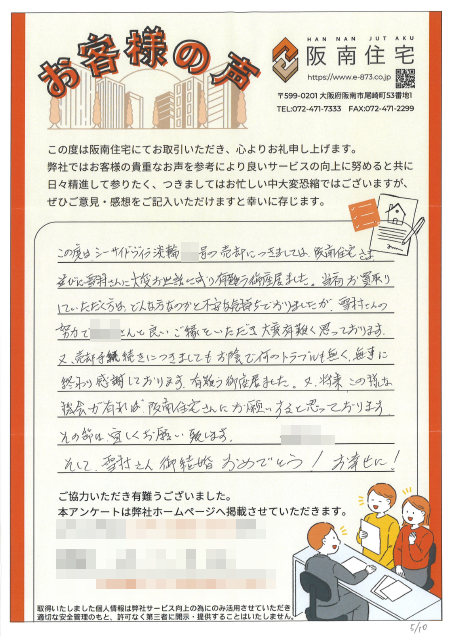 お客様の声
HAN NAN JUTAKU
阪南住宅
https://www.e-873.co.jp
〒599-0201 大阪府阪南市尾崎町53番地1
TEL:072-471-7333 FAX:072-471-2299
この度は阪南住宅にてお取引いただき、心よりお礼申し上げます。
弊社ではお客様の貴重なお声を参考により良いサービスの向上に努めると共に
日々精進して参りたく、つきましてはお忙しい中大変恐縮ではございますが、
ぜひご意見・感想をご記入いただけますと幸いに存じます。
この度はシーサイドヴィラ淡輪 号の売却につきましては、阪南住宅さま
並びに 村さんに大変お世話になり有難う御座居ました。当初お買取り
していただく方は、どんな方なのかと不安な気持ちでおりましたが、 村さんの
努力で さんと良いご縁をいただき大変有難く思っております。
又、売却手続きにつきましてもお陰で何のトラブルも無く、無事に
終わり感謝しております。有難う御座居ました。又、将来この様な
機会が有れば阪南住宅さんにお願いすると思っております
その節は宜しくお願い致します。
そして、 村さん御結婚おめでとう!お幸せに!
ご協力いただき有難うございました。
本アンケートは弊社ホームページへ掲載させていただきます。
取得いたしました個人情報は弊社サービス向上の為にのみ活用させていただき
適切な安全管理のもと、許可なく第三者に開示・提供することはいたしません。
5/10